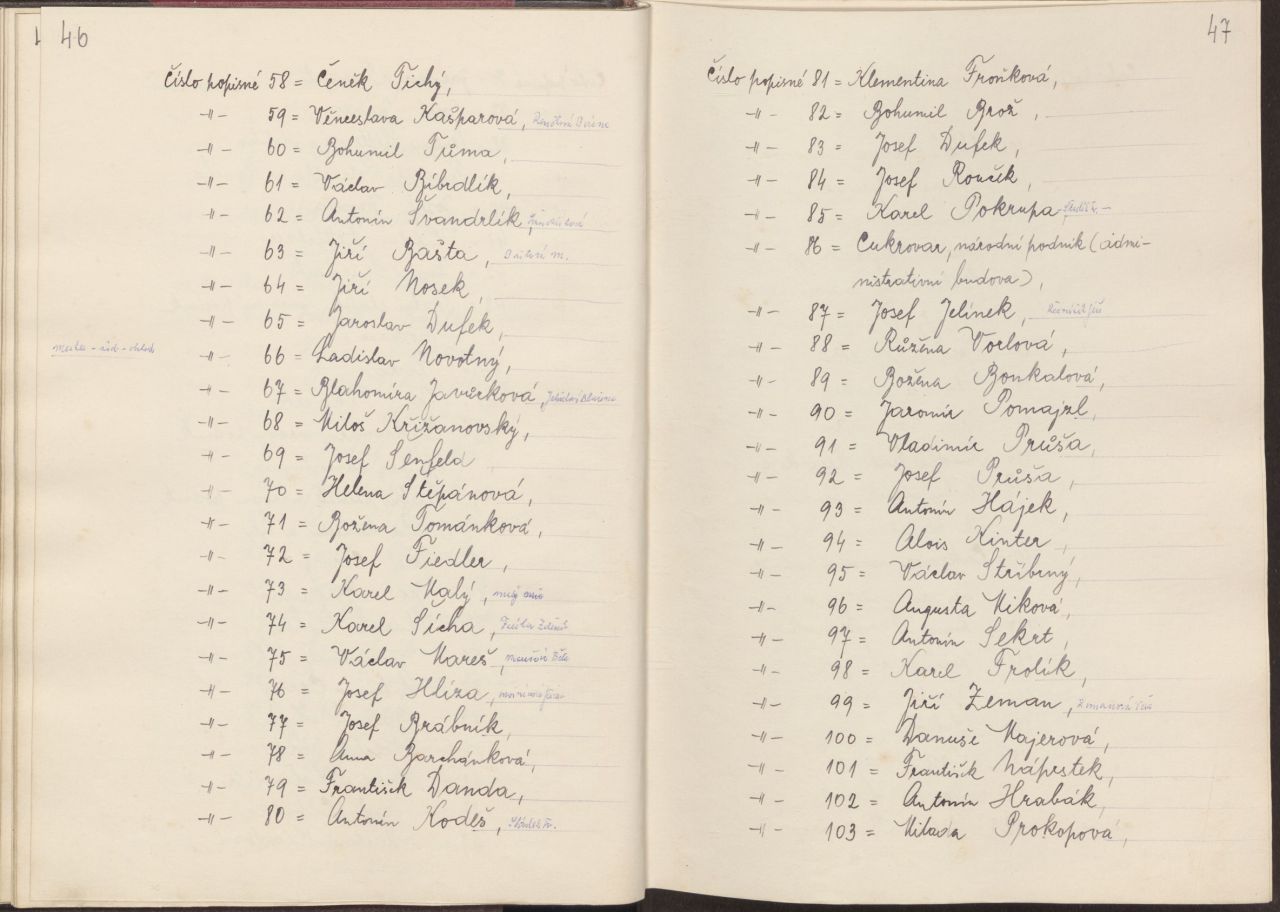 46
Číslo popisné 58 = Čeněk Tichý,
-"- 59 = Věnceslava Kašparová,
-"- 60 = Bohumil Tůma,
-"- 61 = Václav Bibrdlík,
-"- 62 = Antonín Švandrlík,
-"- 63 = Jiří Bašta,
-"- 64 = Jiří Nosek,
-"- 65 = Jaroslav Dufek,
-"- 66 = Ladislav Novotný,
-"- 67 = Blahomíra Javůrková,
-"- 68 = Miloš Křižanovský,
-"- 69 = Josef Senfeld
-"- 70 = Helena Štěpánová,
-"- 71 = Božena Tománková,
-"- 72 = Josef Fiedler,
-"- 73 = Karel Malý,
-"- 74 = Karel Šícha,
-"- 75 = Václav Mareš,
-"- 76 = Josef Hlíza,
-"- 77 = Josef Brábník,
-"- 78 = Anna Barchánková,
-"- 79 = František Danda,
-"- 80 = Antonín Kodeš,
47
Číslo popisné 81 = Klementina Froňková,
-"- 82 = Bohumil Brož,
-"- 83 = Josef Dufek,
-"- 84 = Josef Rouček,
-"- 85 = Karel Pokrupa
-"- 86 = Cukrovar, národní podnik (admi-
nistrativní budova),
-"- 87 = Josef Jelínek,
-"- 88 = Růžena Vorlová,
-"- 89 = Božena Bonkalová,
-"- 90 = Jaromír Pomajzl,
-"- 91 = Vladimír Průša,
-"- 92 = Josef Průša,
-"- 93 = Antonín Hájek,
-"- 94 = Alois Kinter,
-"- 95 = Václav Stříbrný,
-"- 96 = Augusta Miková,
-"- 97 = Antonín Sekrt,
-"- 98 = Karel Frolík,
-"- 99 = Jiří Zeman,
-"- 100 = Danuše Majerová,
-"- 101 = František Náprstek,
-"- 102 = Antonín Hrabák,
-"- 103 = Milada Prokopová,